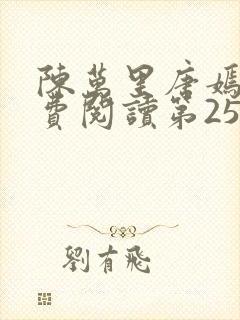 陳萬里唐嫣
費閱讀第25
劉有飛